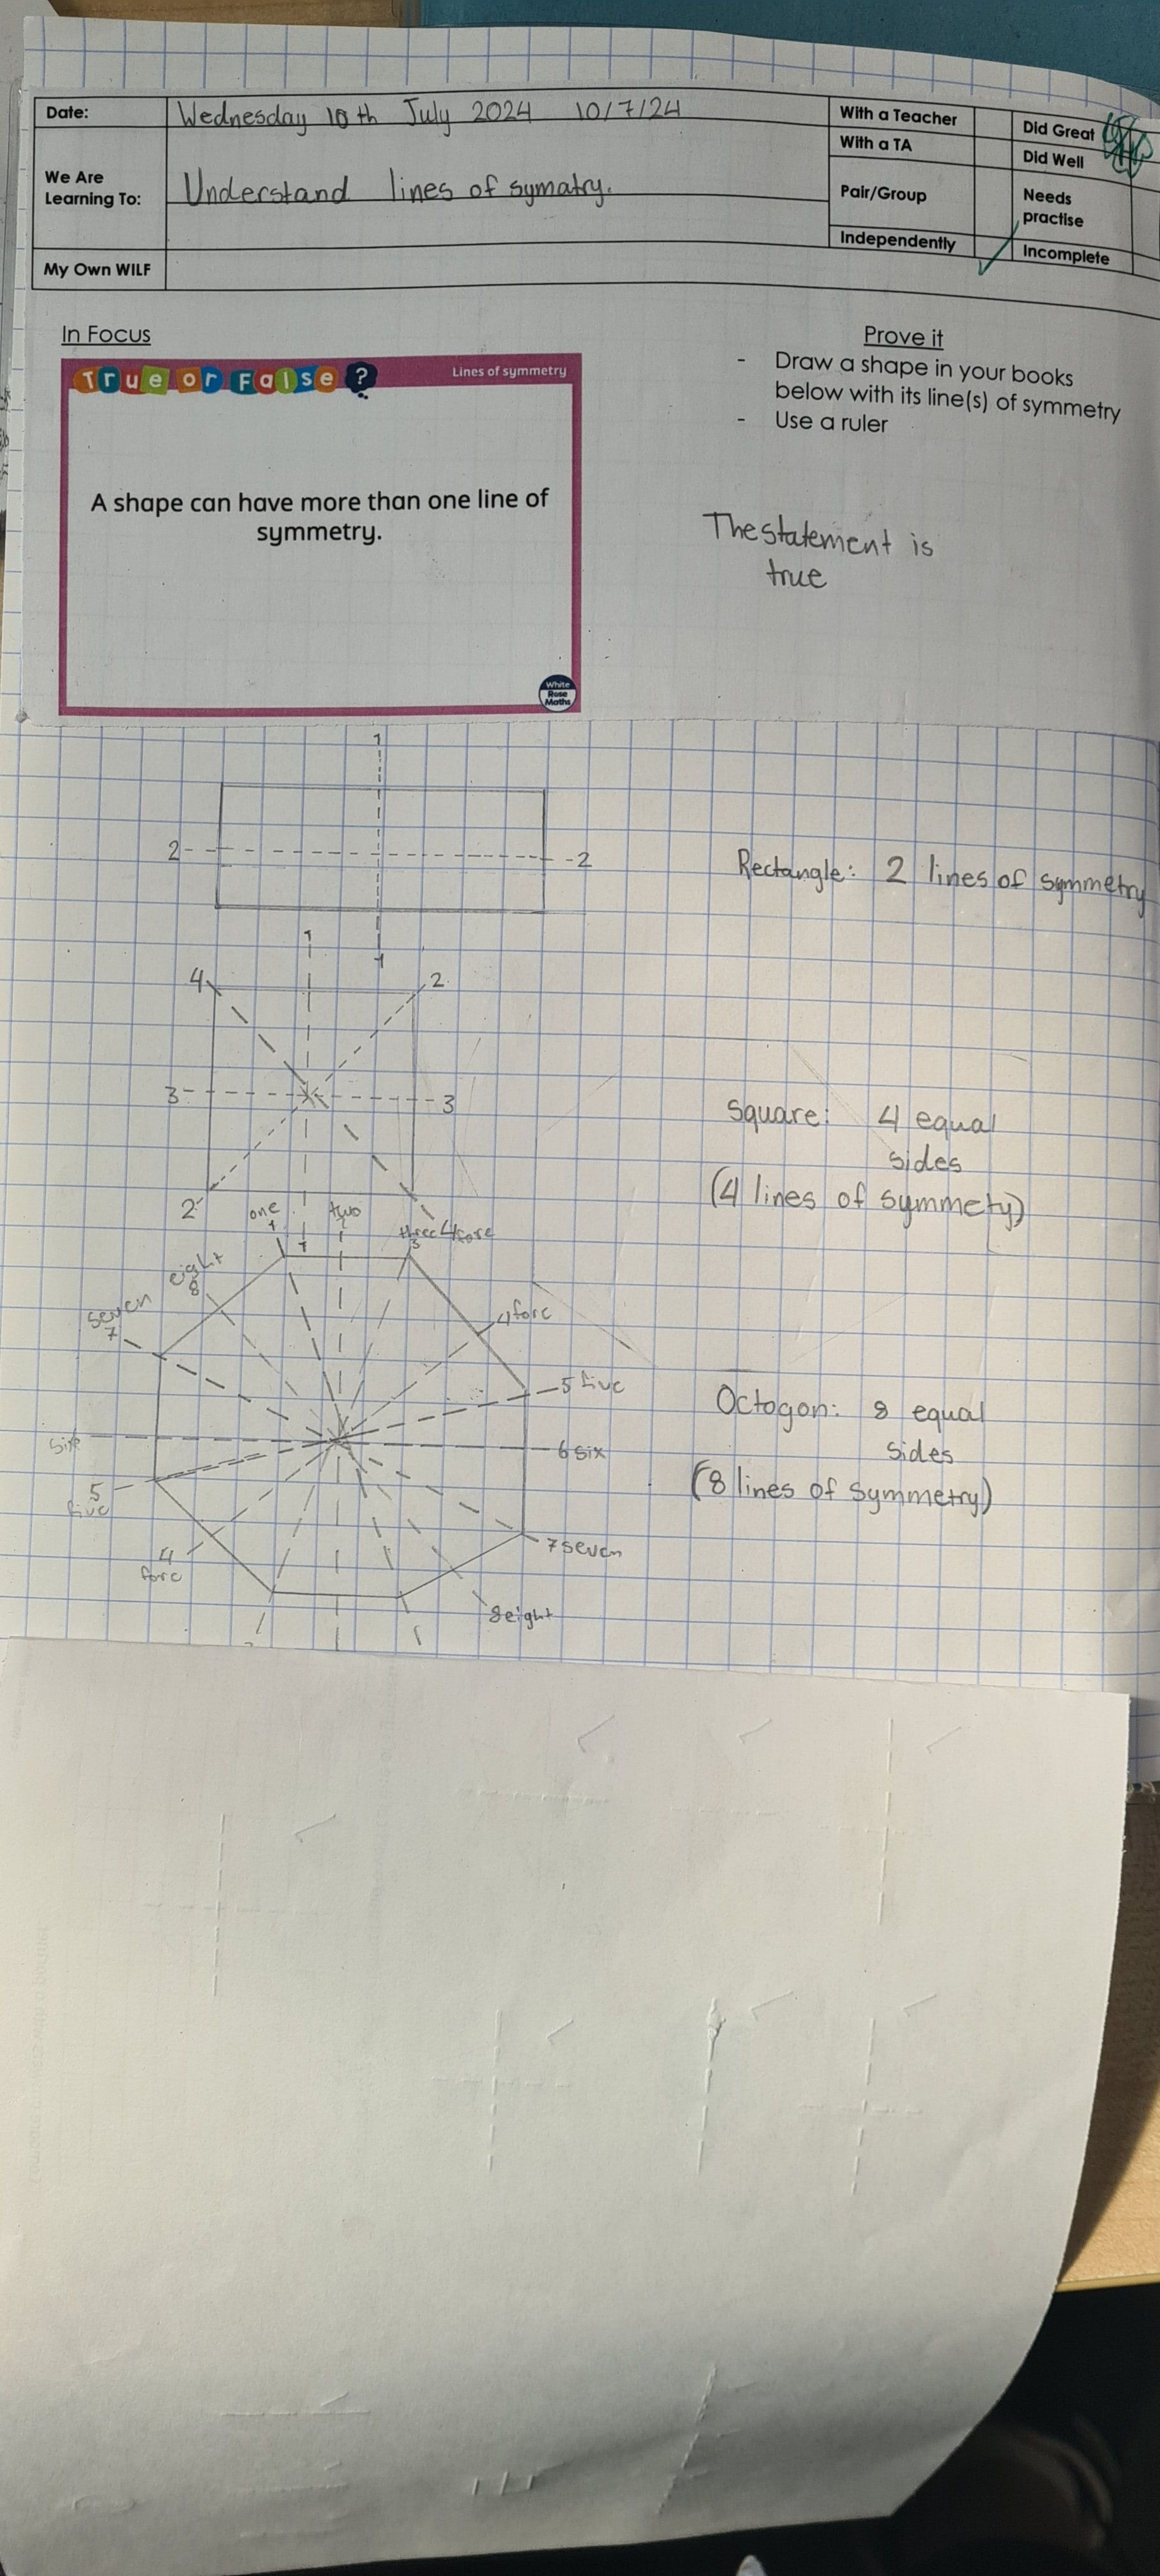 Date:
Wednesday 10th July 2024 10/7/24
We Are
Learning To:
Understand lines of symatry.
My Own WILF
With a Teacher
With a TA
Pair/Group
Independently
Did Great
Did Well
Needs
practise
Incomplete
In Focus
True or False ?
Lines of symmetry
A shape can have more than one line of
symmetry.
White
Rose
Maths
Prove it
- Draw a shape in your books
below with its line(s) of symmetry
- Use a ruler
The statement is
true
1
2 2
1
Rectangle: 2 lines of symmetry
1
4 2
3 3
2 4
1
Square: 4 equal
sides
(4 lines of symmety)
one two three fore
1 3
eight
8
seven
7
4 forc
5 five
six 6 six
5
five
7 seven
4
forc
8eight
Octogon: 8 equal
sides
(8 lines of symmetry)